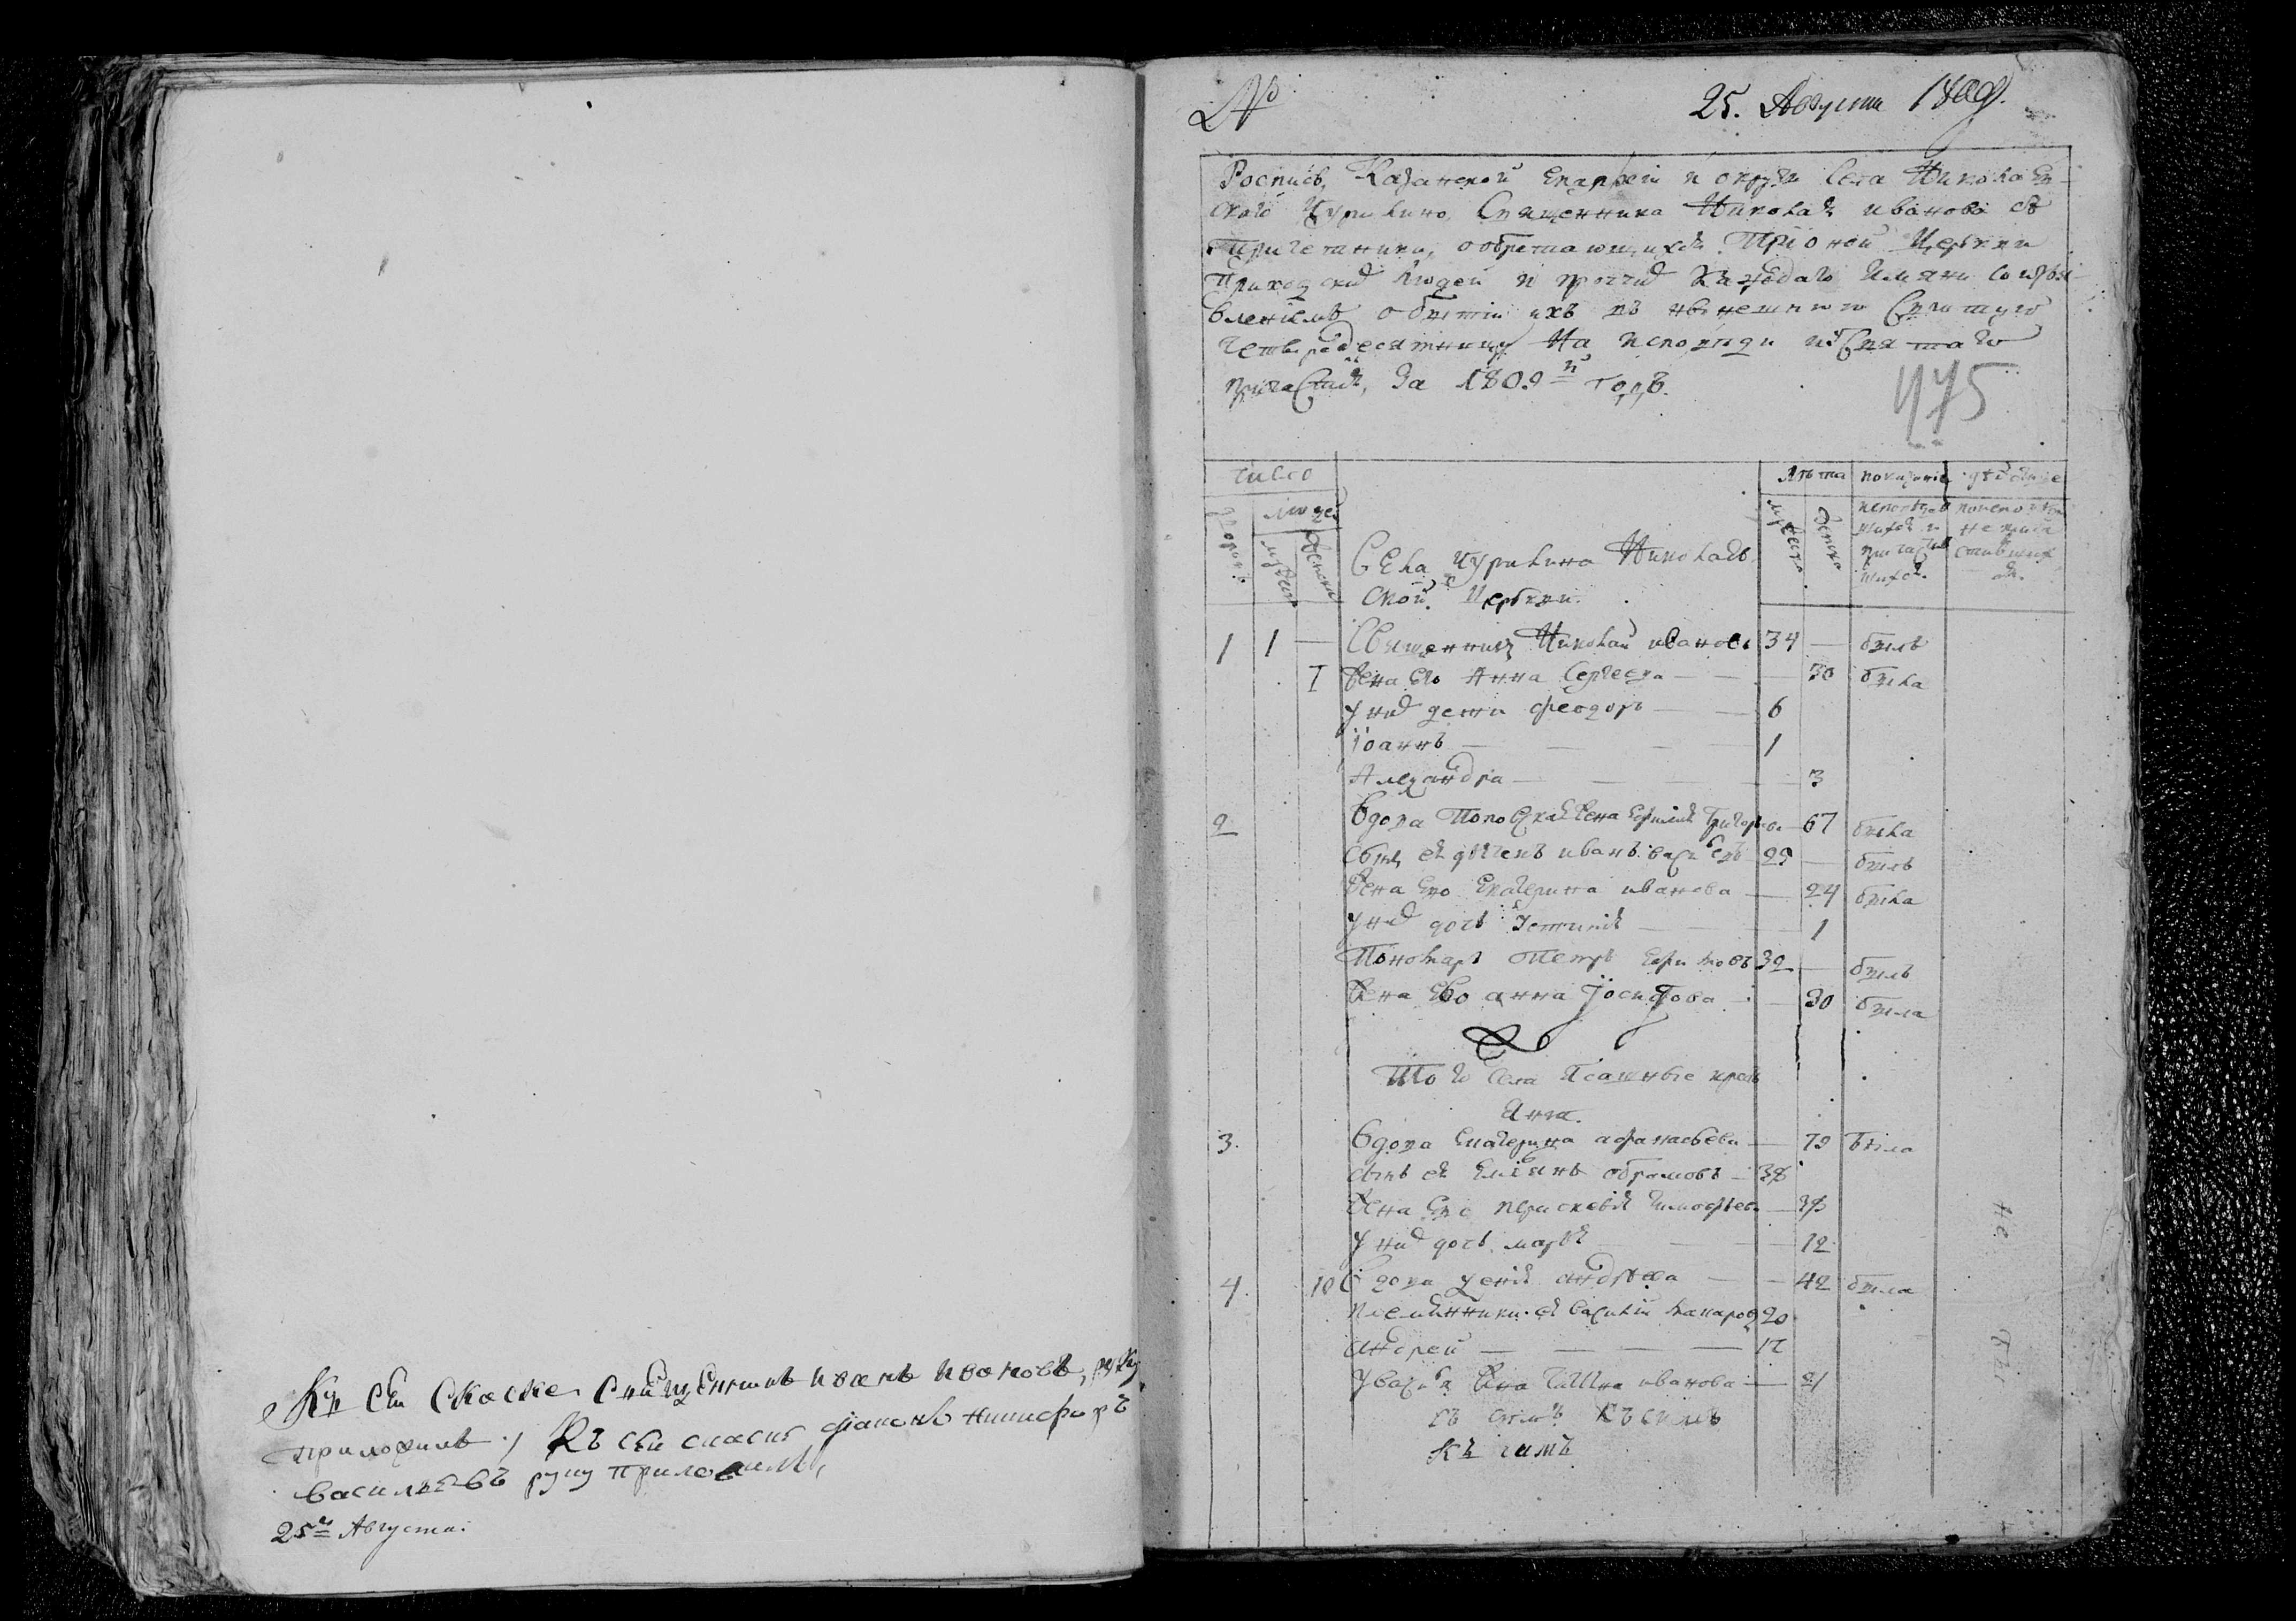 Къ сей скаске священникъ иванъ ивановъ, руку
приложилъ / Къ сей скаске диаконъ никифоръ
василиевъ руку приложилъ,
25го Августа.
№
25. Августа 1809.
Роспись, Казанской Епархии и округи Села Николаев-
ского Чурилино, Священника Николая иванова съ
Причетники, обретающихся При оной Церкви
Приходскихъ людей и протчихъ каждаго имяни со изъя-
влениемъ о бытии ихъ въ нынешнюю Святую
четыредесятницу На исповеди и Святаго
причастия, За 1809й годъ.
475
число
людей
дворовъ
мужеска
женска
Лета показание действие
мужеска
женска
исповедав
шихся и
причастив
шихся.
Села Чурилина Николаев
ской Церкви.
1 1 — Священникъ Николай ивановъ 34 — былъ
1 Жена Его Анна Сергеева — 30 была
У нихъ дети Феодоръ — 6
Иоаннъ — 1
Александра — 3
2 Вдова Попова жена Григорьева — 67 была
Сынъ ея дьячекъ иванъ васильевъ 29 — былъ
Жена Его Екатерина иванова — 24 была
У нихъ дочь Устиния — 1
Пономарь Петръ 32 — былъ
Жена Его анна Иосифова — 30 была
Того Села Ясашные кресть
Яня.
3. Вдова Екатерина афанасьева — 79 была
сынъ ея Емелянъ обрамовъ — 38
Жена Его Парасковия тимофеева — 38
У нихъ дочь марья — 12
4. 10 Вдова андреева — 42 была
племянники ея Василий макаровъ 20
андрей — 12
У Василья жена иванова — 21
къ симъ
къ чимъ
не
был